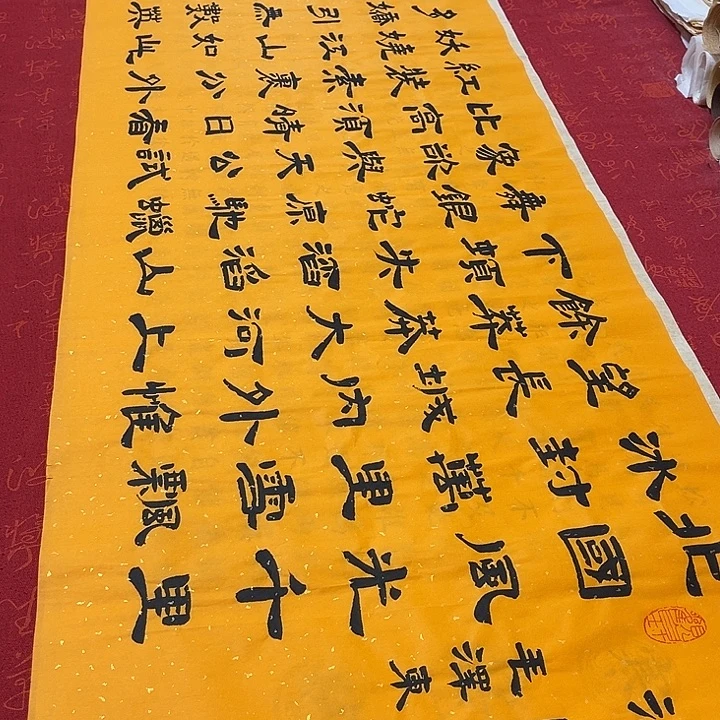 北國風光千里
冰封萬里雪飄
望長城内外惟
餘莽莽大河上
下頓失滔滔山
舞銀蛇原馳蠟
象欲與天公試
比高須晴日看
紅裝素裹分外
妖嬈江山如此
多嬌引無數
毛澤東